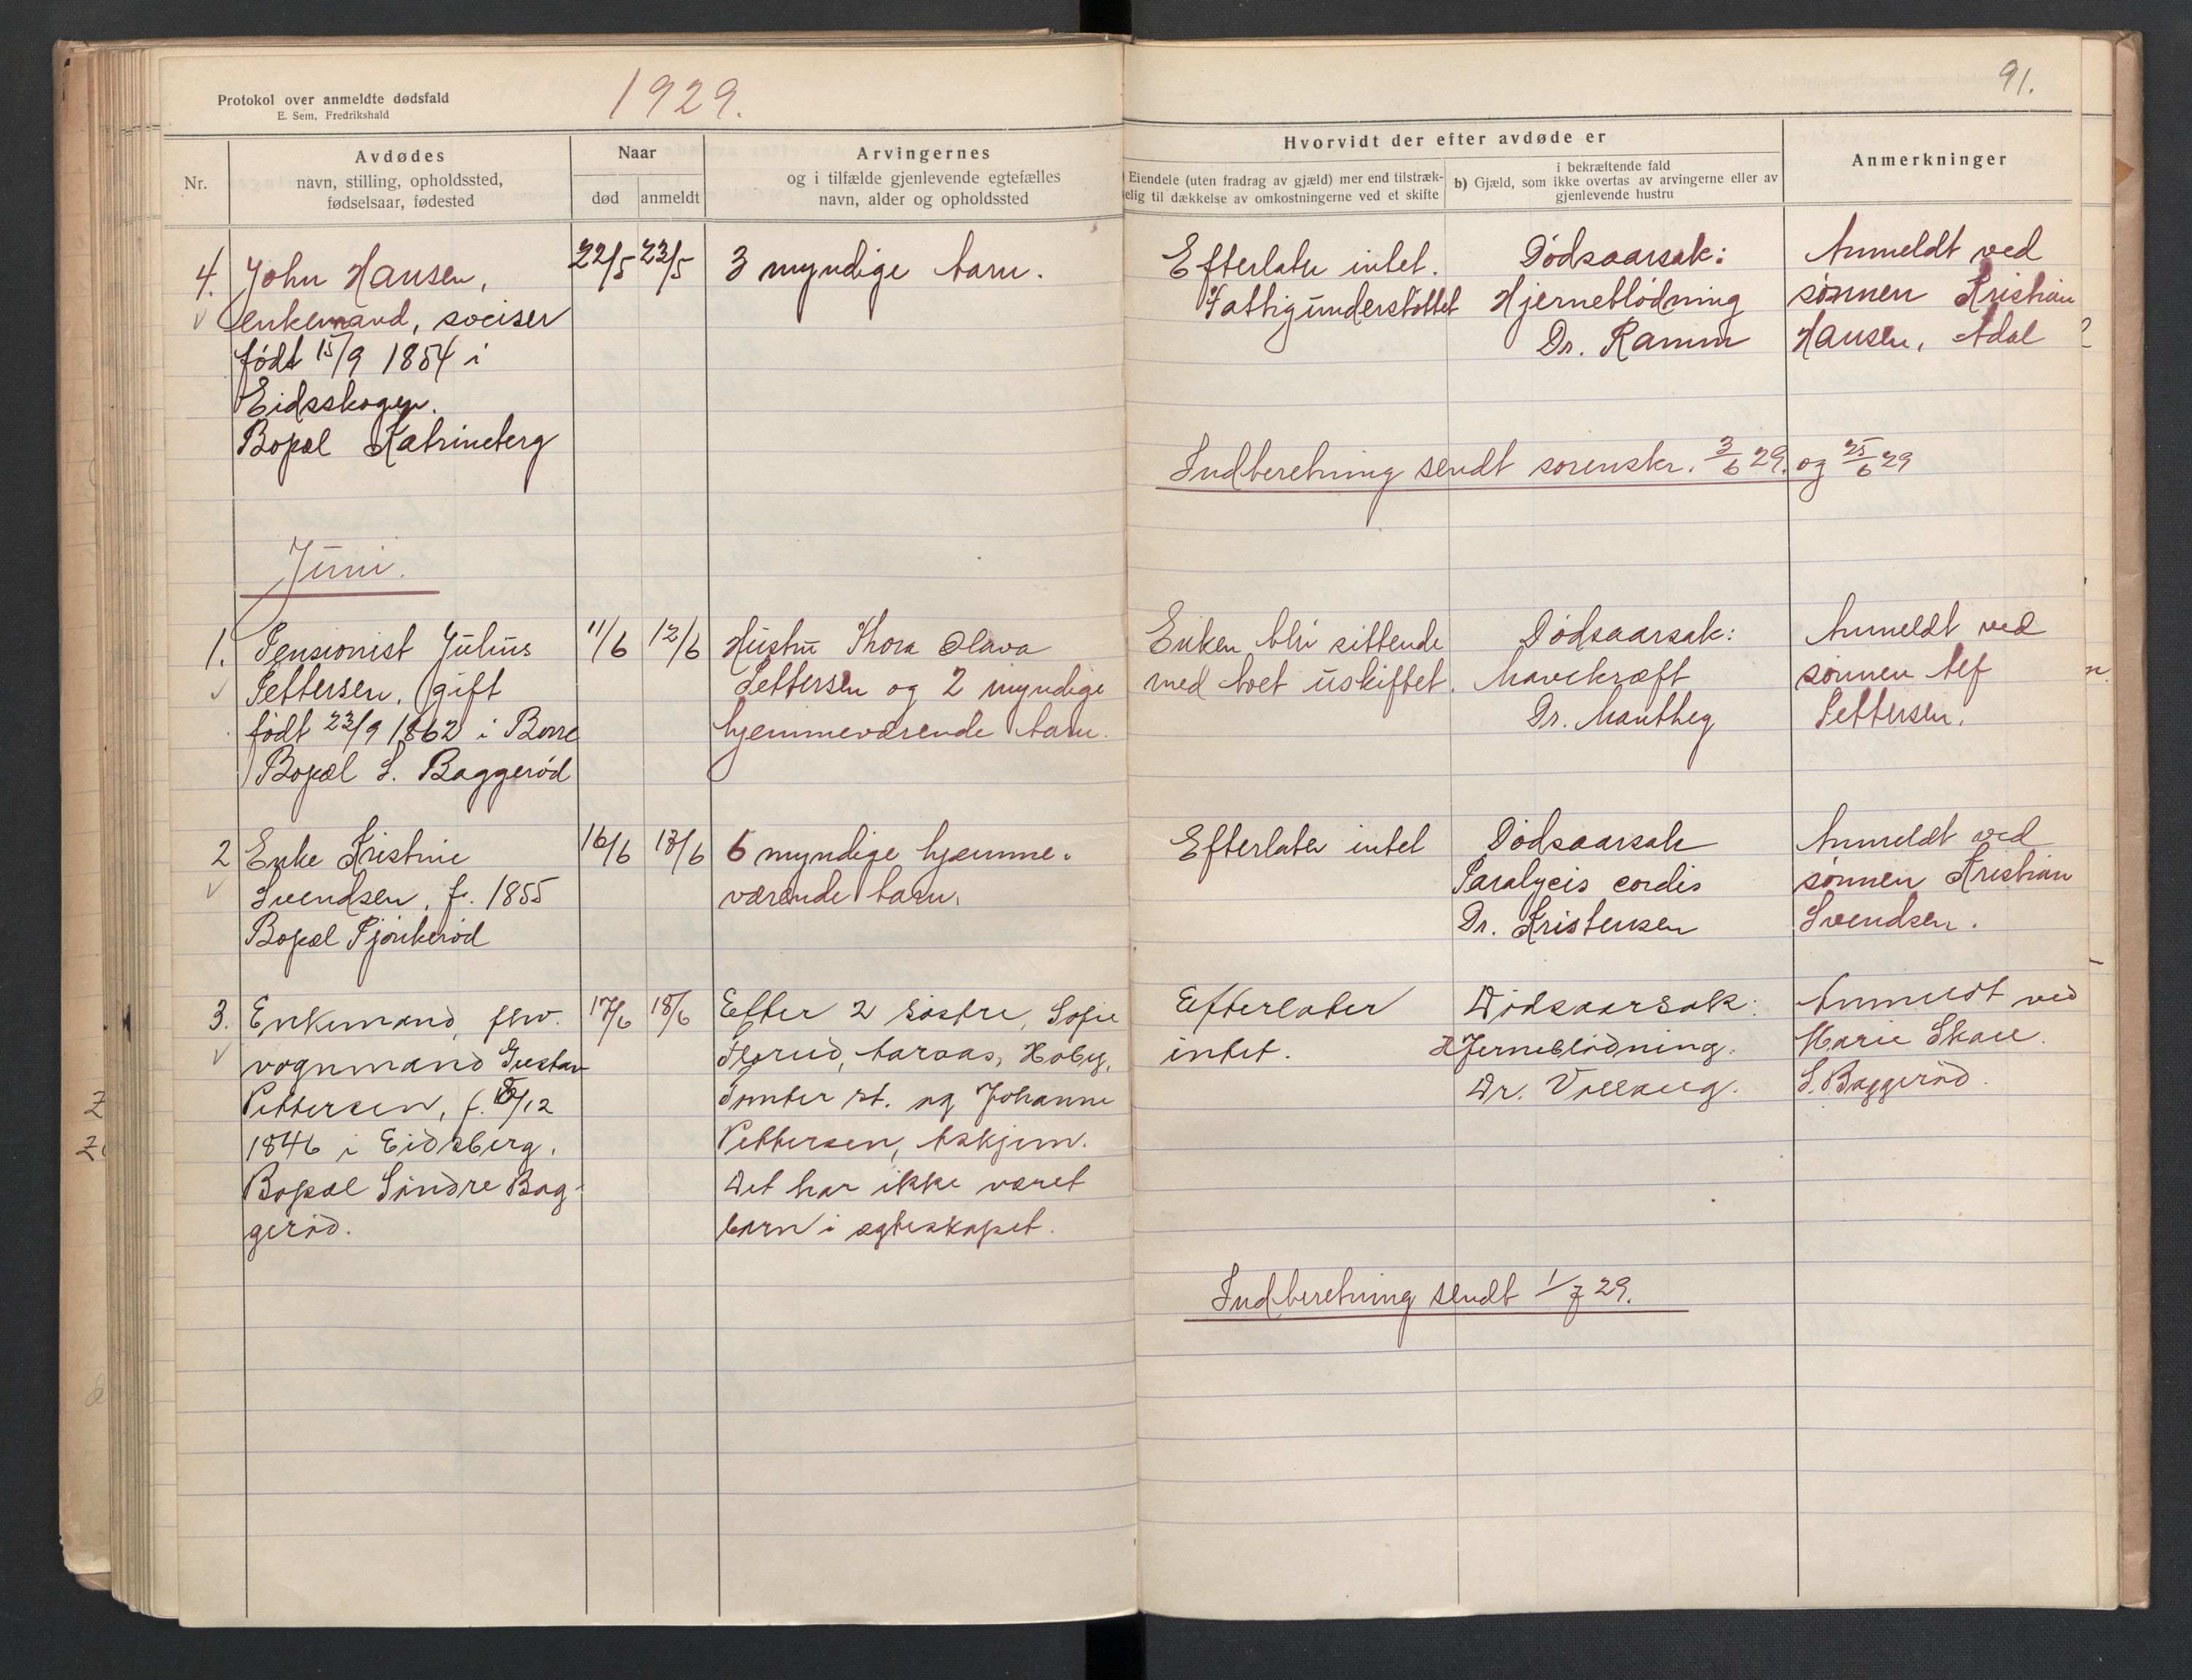 Protokol over anmeldte dødsfald
E. Sem, Fredrikshald
1929.
91.
Nr.
Avdødes
navn, stilling, opholdssted,
fødselsaar, fødested
Naar
død
anmeldt
Arvingernes
og i tilfælde gjenlevende egtefælles
navn, alder og opholdssted
Hvorvidt der efter avdøde er
Eiendele (uten fradrag av gjæld) mer end tilstræk-
elig til dækkelse av omkostningerne ved et skifte
i bekræftende fald
b) Gjæld, som ikke overtas av arvingerne eller av
gjenlevende hustru
Anmerkninger
4. John Hansen,
enkemand, sociser
født 15/9 1854 i
Eidsskogen.
Bopæl Katrineberg
22/5 23/5
3 myndige barn.
Efterlater intet.
Fattigunderstøttet
Dødsaarsak:
Hjerneblødning
Dr. Ramm
Anmeldt ved
sønnen Kristian
Hansen, Adal
Indberetning sendt sorenskr. 3/6 29. og 25/6 29
Juni.
1. Pensionist Julius
Pettersen, gift
født 23/9 1862 i Borre
Bopæl S. Baggerød
11/6 12/6
Hustru Thora Olava
Pettersen og 2 myndige
hjemmeværende barn.
Enken blir sittende
med boet uskiftet.
Dødsaarsak:
Mavekræft
Dr. Manthey
Anmeldt ved
sønnen Alf
Pettersen.
2 Enke Kristine
Svendsen, f. 1855
Bopæl Pjønkerød
16/6 18/6
6 myndige hjemme-
værende barn.
Efterlater intet
Dødsaarsak
Paralycis cordis
Dr. Kristensen
Anmeldt ved
sønnen Kristian
Svendsen.
3. Enkemand, fhv.
vognmand Gustav
Pettersen, f. /12
1846 i Eidsberg.
Bopæl Søndre Bag-
gerød.
17/6 18/6
Efter 2 søstre, Sofie
Aaraas, Hobøl,
Tomter st. og Johanne
Pettersen, Askjem.
Det har ikke været
barn i egteskapet.
Efterlater
intet.
Dødsaarsak:
Hjerneblødning.
Dr. Vollaug.
Anmeldt ved
Marie Skau.
S. Baggerød.
Indberetning sendt 1/7 29.